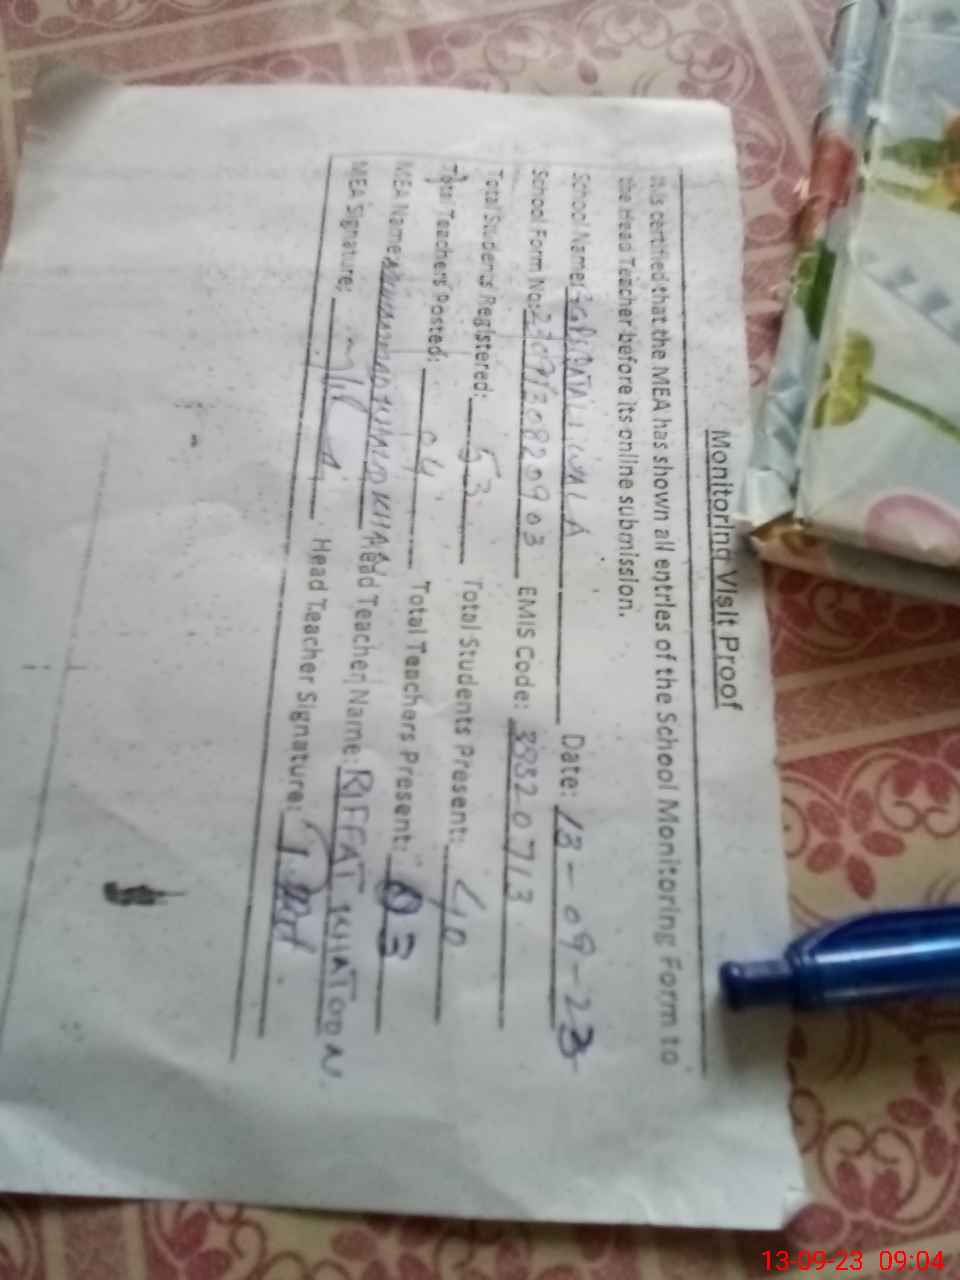 Monitoring Visit Proof
It is certified that the MEA has shown all entries of the School Monitoring Form to
the Head Teacher before its online submission.
School Name: Date: 13-09-23
School Form No: EMIS Code: 39320713
Total Students Registered: 53 Total Students Present: 40
Total Teachers Posted: 04 Total Teachers Present: 03
MEA Name: MUHAMMAD KHAN Head Teacher Name: RIFFAT KHATOON
MEA Signature: Head Teacher Signature:
13-09-23 09:04